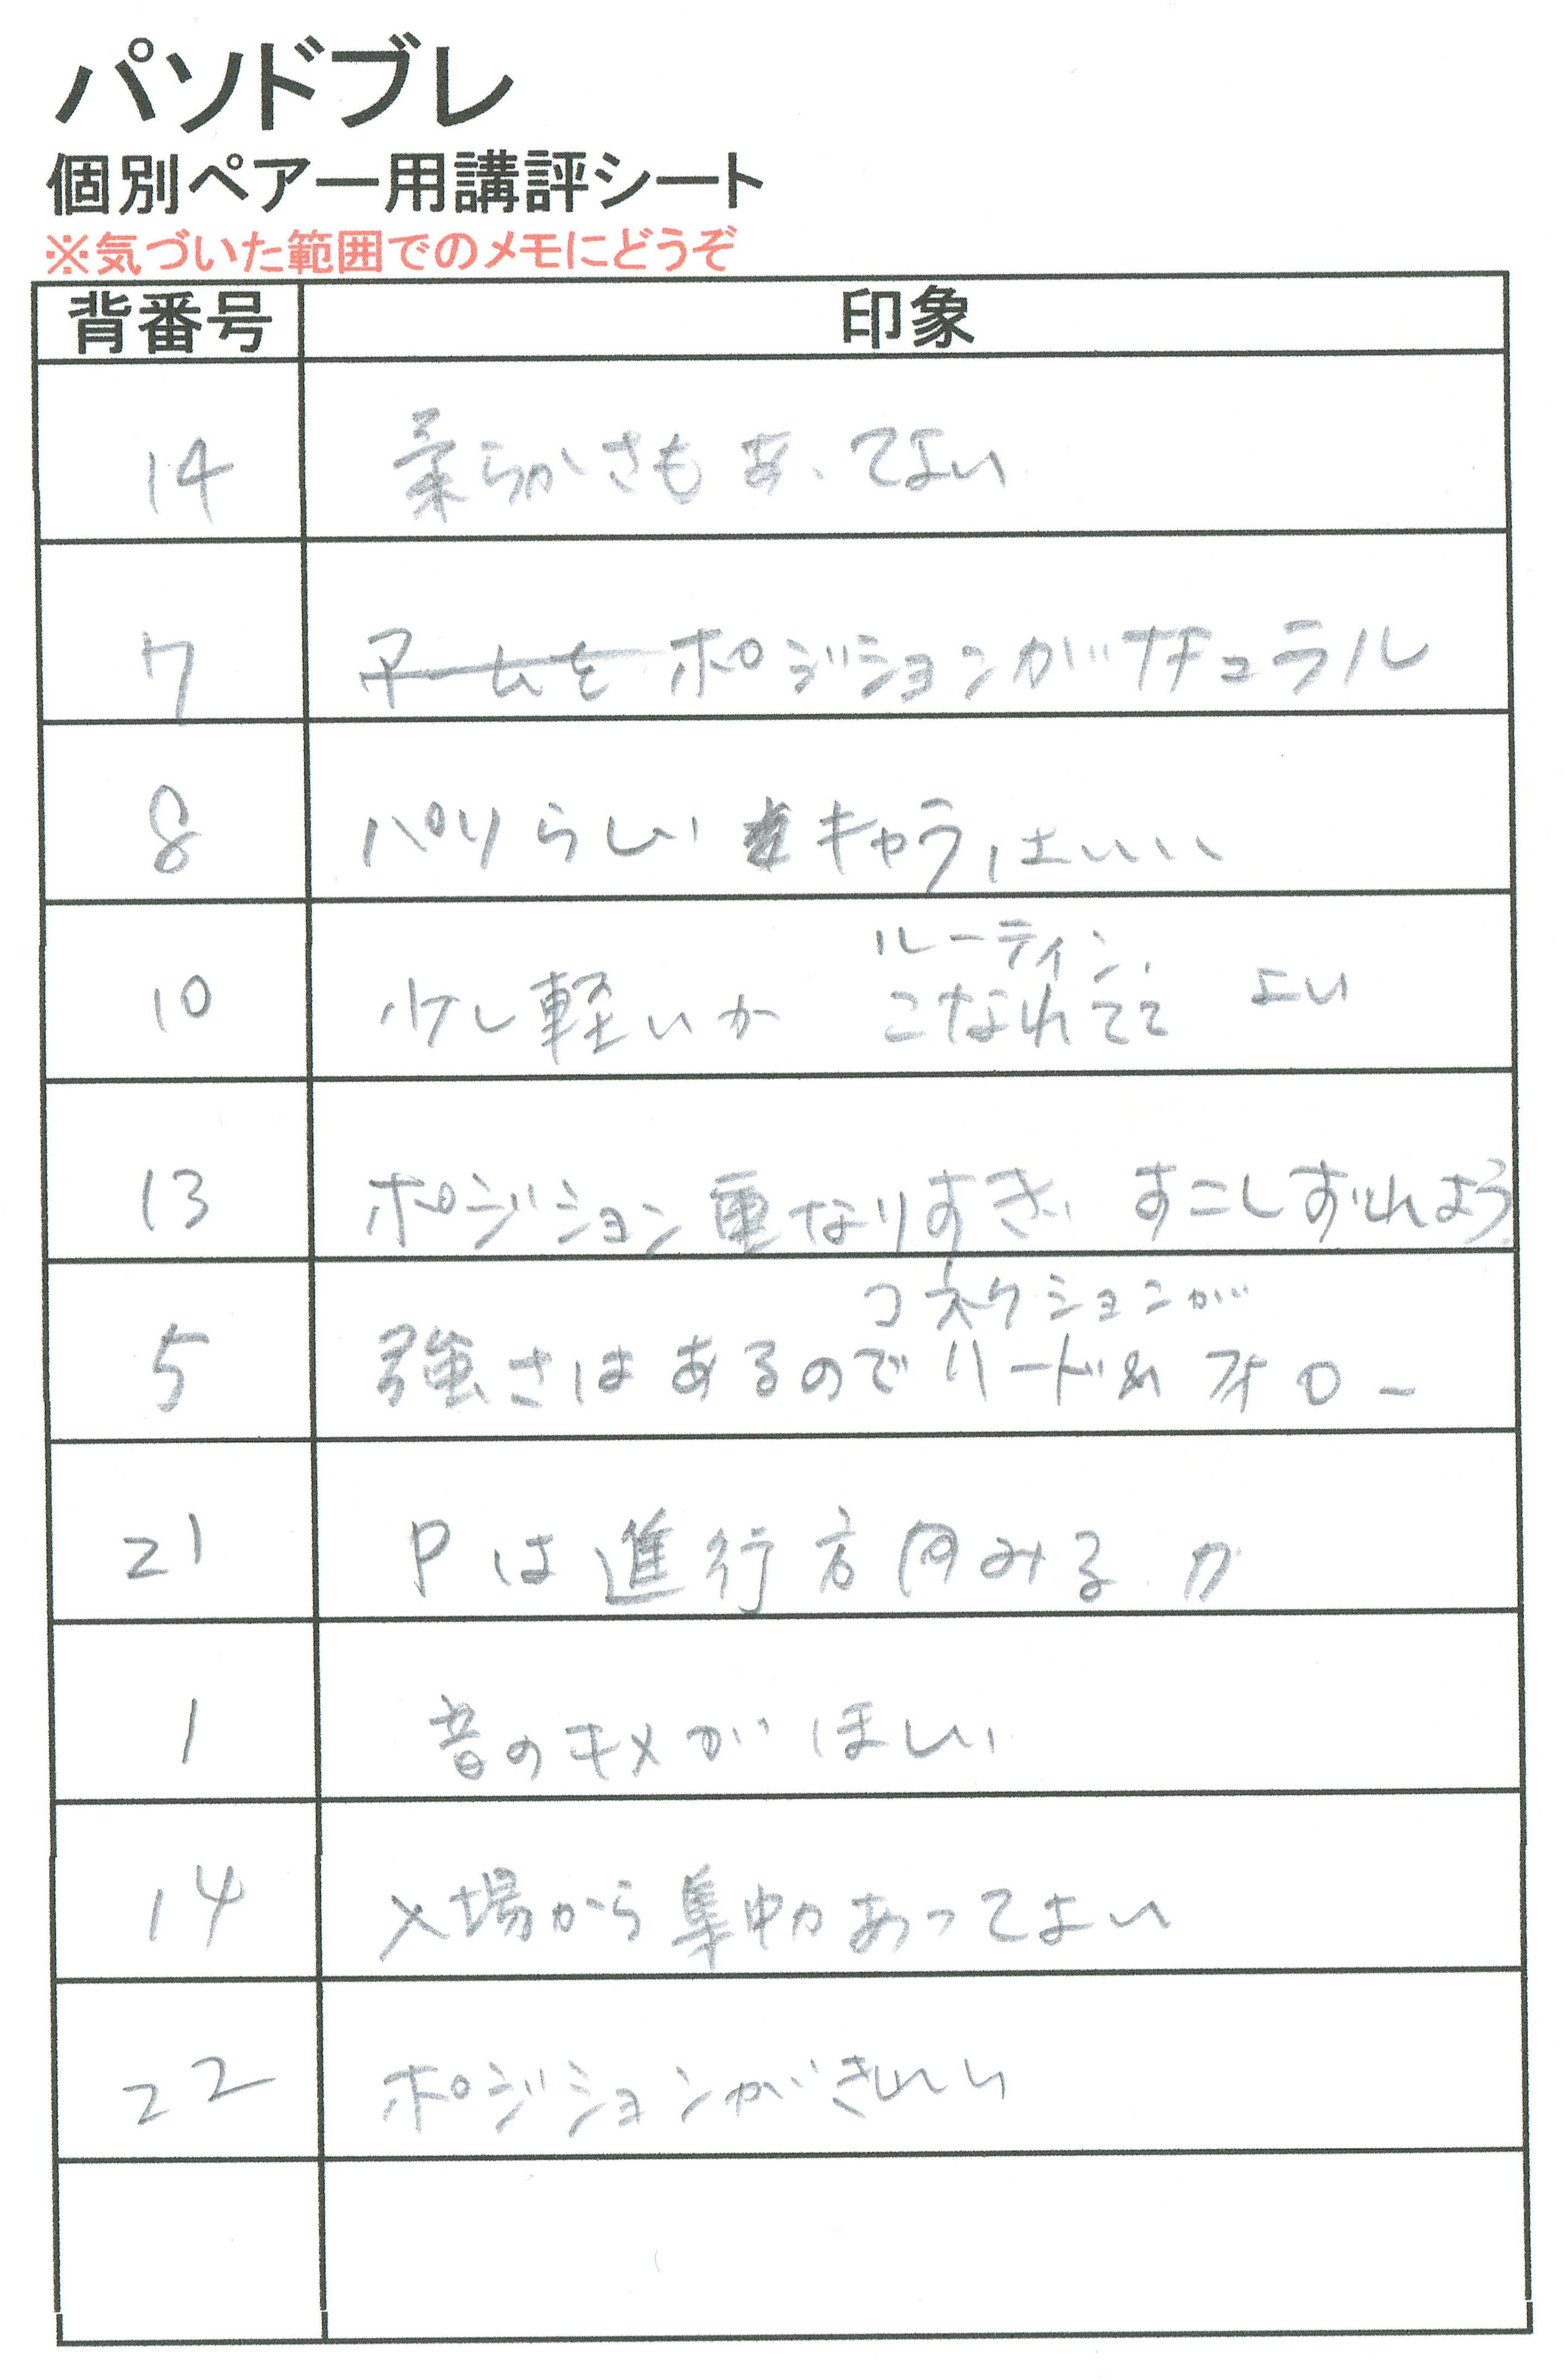 パソドブレ
個別ペアー用講評シート
※気づいた範囲でのメモにどうぞ
背番号 印象
14 柔らかさもあってよい
7 アームを ポジションがナチュラル
8 パソらしいキャラはいい
ルーティン
10 少し軽いか こなれてて よい
13 ポジション重なりすぎ すこしずれよう
コネクションが
5 強さはあるのでリード&フォロー
21 Pは進行方向みる か
1 音のキメがほしい
14 入場から集中力あってよい
22 ポジションがきれい